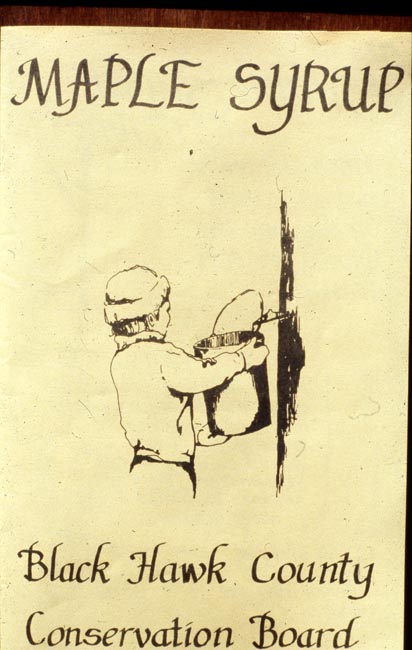 MAPLE SYRUP
Black Hawk County
Conservation Board